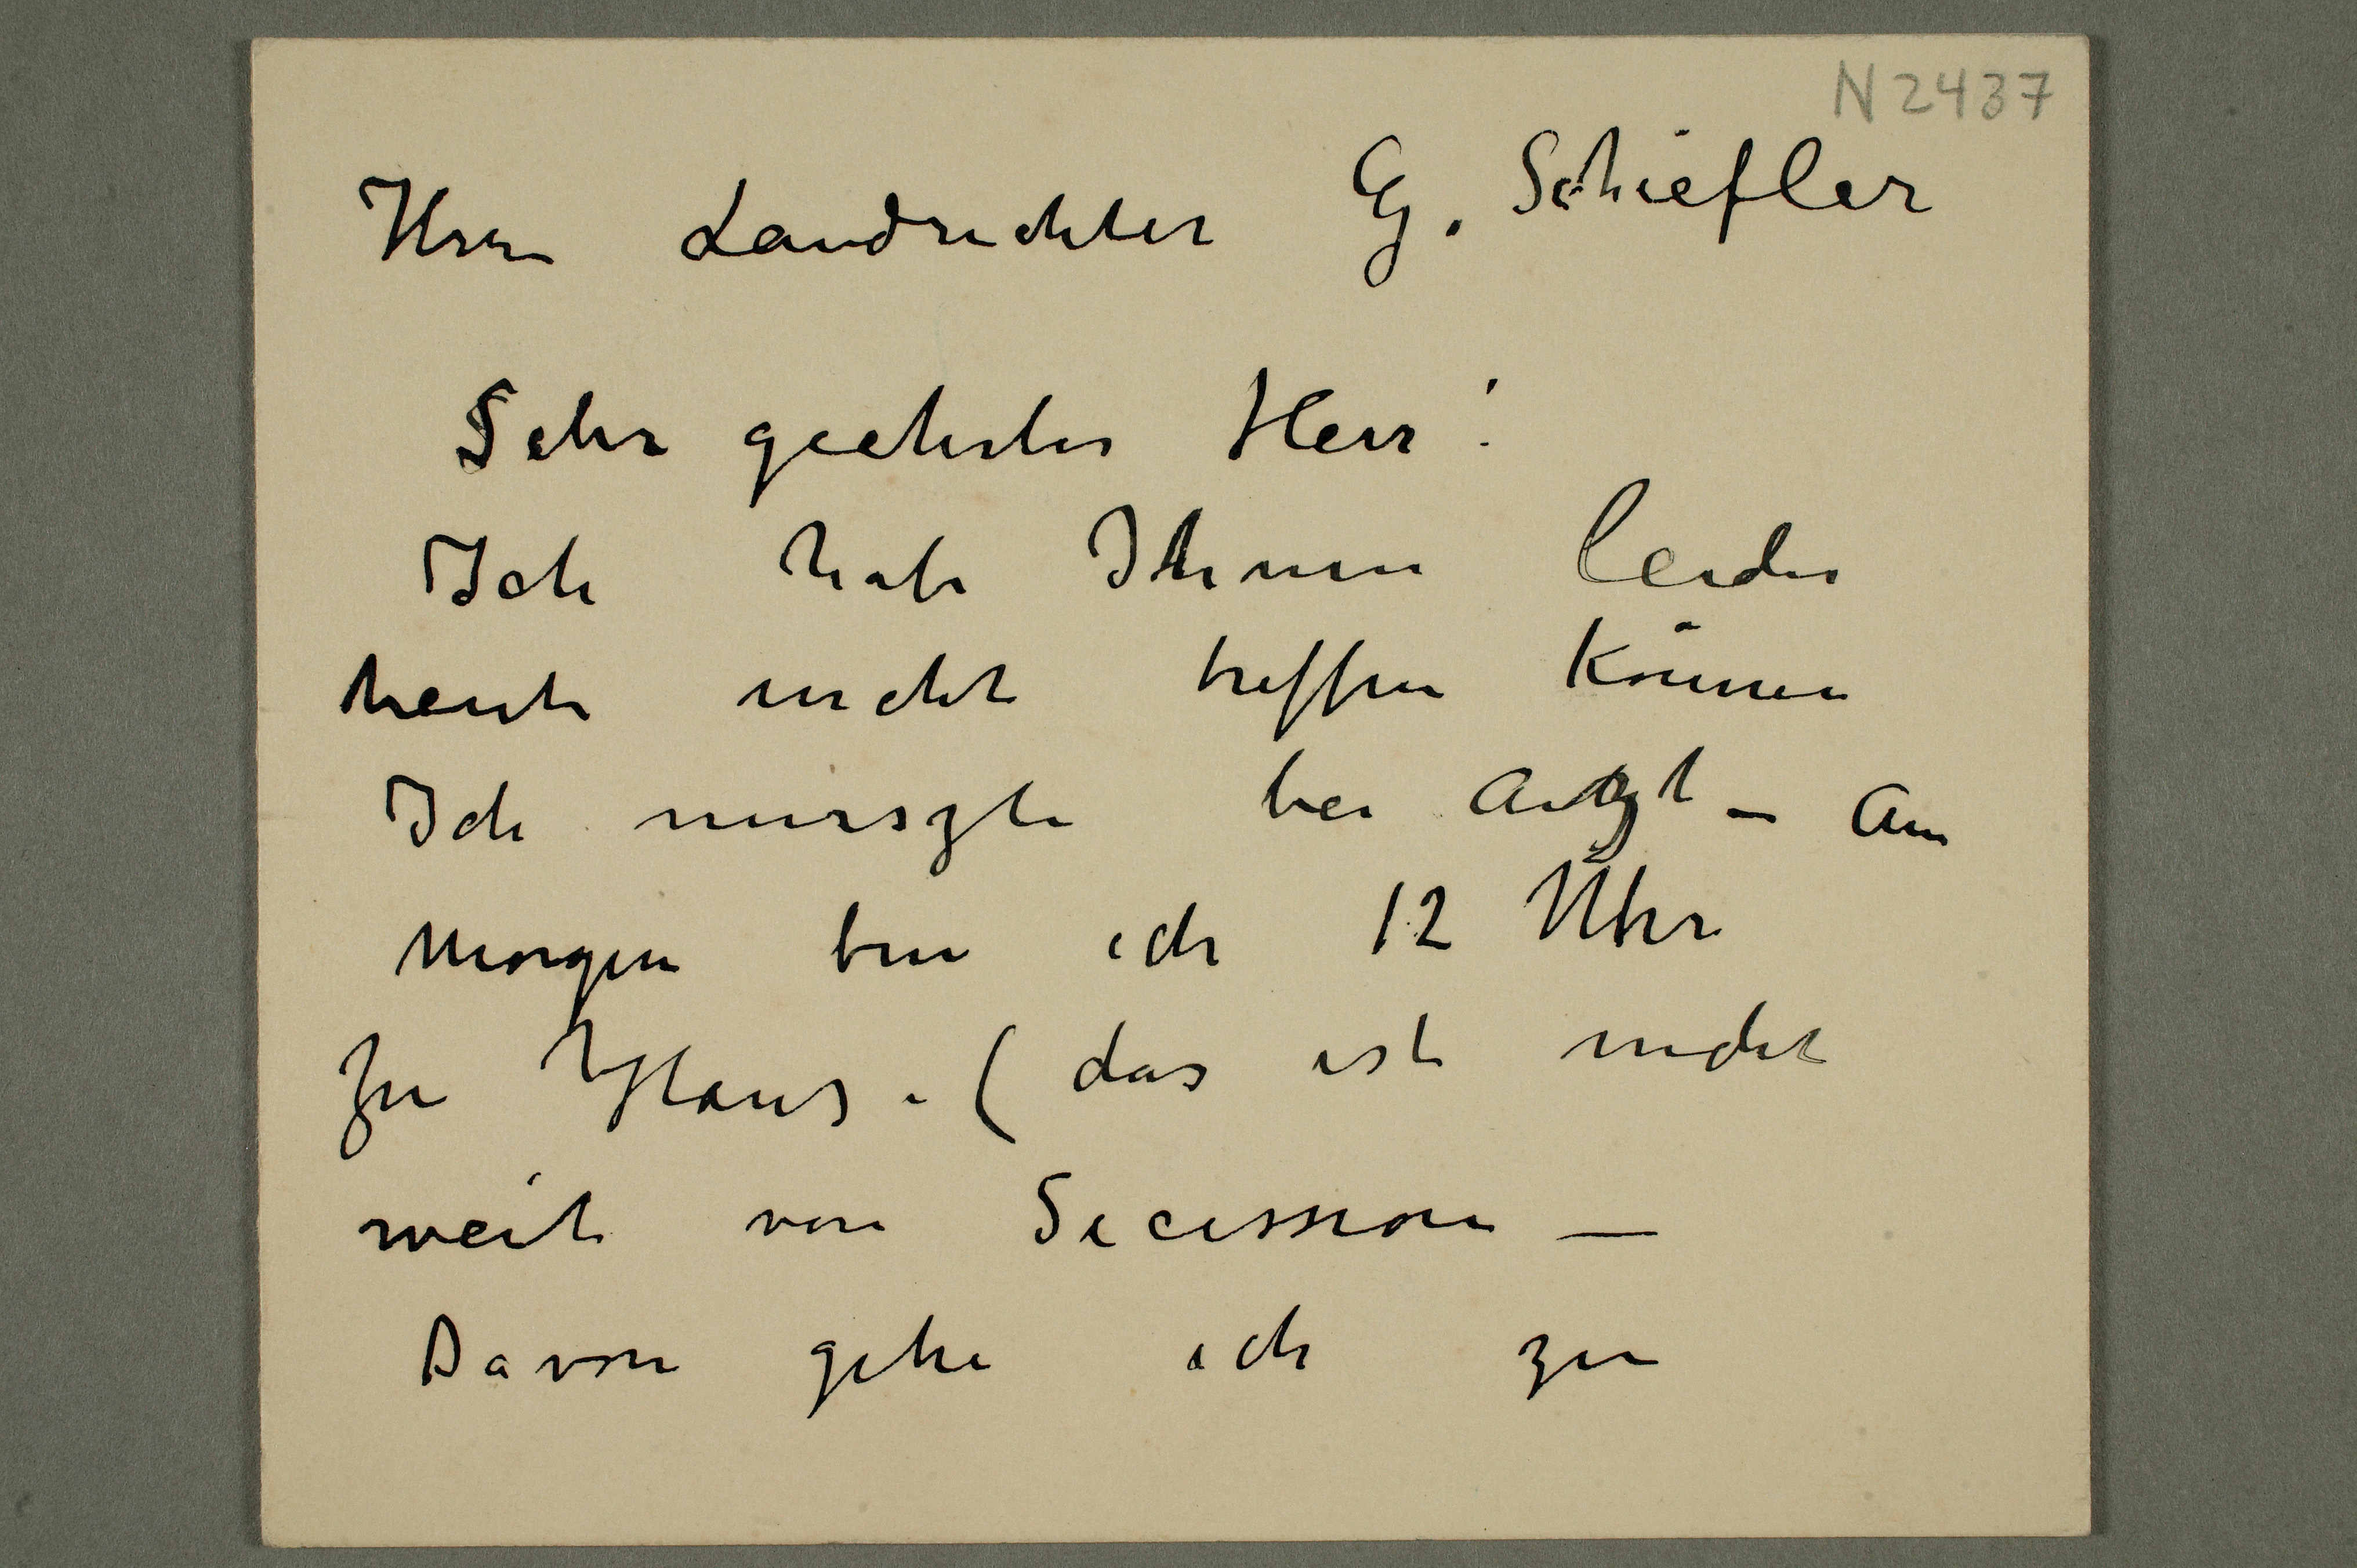 N 2437
Herrn Landrichter G. Schiefler
Sehr geehrter Herr!
Ich habe Ihnen leider
heute nicht treffen können
Ich muszte bei Arzt – Am
Morgen bin ich 12 Uhr
zu Haus. (das ist nicht
weit von Secession –
Davon gehe ich zu